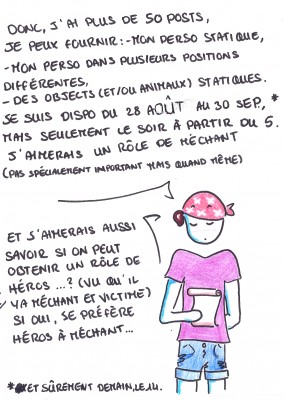 DONC, J'AI PLUS DE 50 POSTS,
JE PEUX FOURNIR:-MON PERSO STATIQUE,
-MON PERSO DANS PLUSIEURS POSITIONS
DIFFÉRENTES,
- DES OBJECTS (ET/OU ANIMAUX) STATIQUES.
JE SUIS DISPO DU 28 AOÛT AU 30 SEP,*
MAIS SEULEMENT LE SOIR À PARTIR DU 5.
J'AIMERAIS UN RÔLE DE MÉCHANT
(PAS SPÉCIALEMENT IMPORTANT MAIS QUAND MÊME)
ET J'AIMERAIS AUSSI
SAVOIR SI ON PEUT
OBTENIR UN RÔLE DE
HÉROS ...? (VU QU'IL
Y A MÉCHANT ET VICTIME)
SI OUI, JE PRÉFÈRE
HÉROS À MÉCHANT...
* ET SÛREMENT DEMAIN, LE 14.